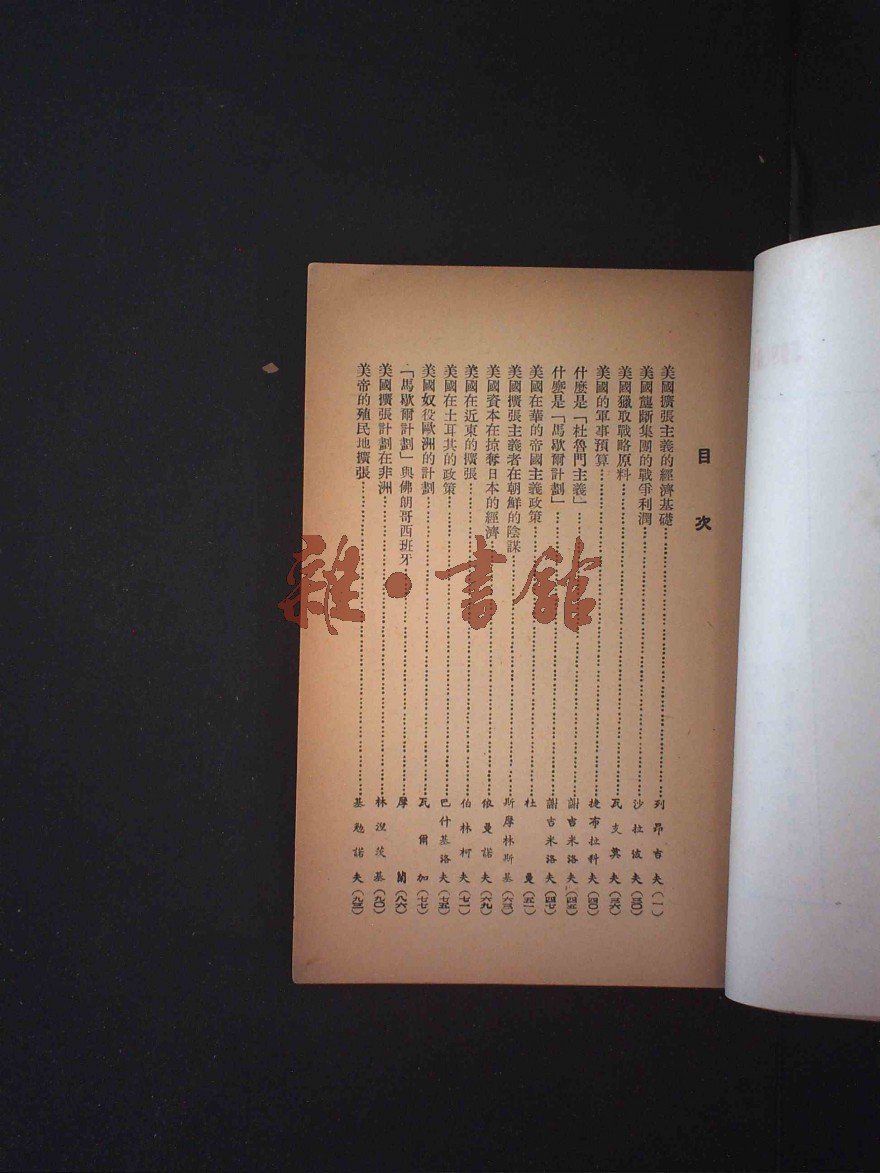 目次
美國擴張主義的經濟基礎……列昂吉夫(一)
美國壟斷集團的戰爭利潤……沙拉波夫(三〇)
美國獵取戰略原料……瓦戈夫(三六)
美國的軍事預算……捷布拉科夫(四〇)
什麼是「杜魯門主義」……謝吉米洛夫(四五)
什麼是「馬歇爾計劃」……謝吉米洛夫(四七)
美國在華的帝國主義政策……杜曼(五一)
美國擴張主義者在朝鮮的陰謀……斯摩林斯基(六三)
美國資本在掠奪日本的經濟……依曼諾夫(六九)
美國在近東的擴張……伯林柯夫(七一)
美國在土耳其的政策……巴什基洛夫(七五)
美國奴役歐洲的計劃……瓦爾加(七七)
「馬歇爾計劃」與佛朗哥西班牙……摩蘭(八六)
美國擴張計劃在非洲……林湼茨基(九〇)
美帝的殖民地擴張……基勉諾夫(九三)
雜·書館